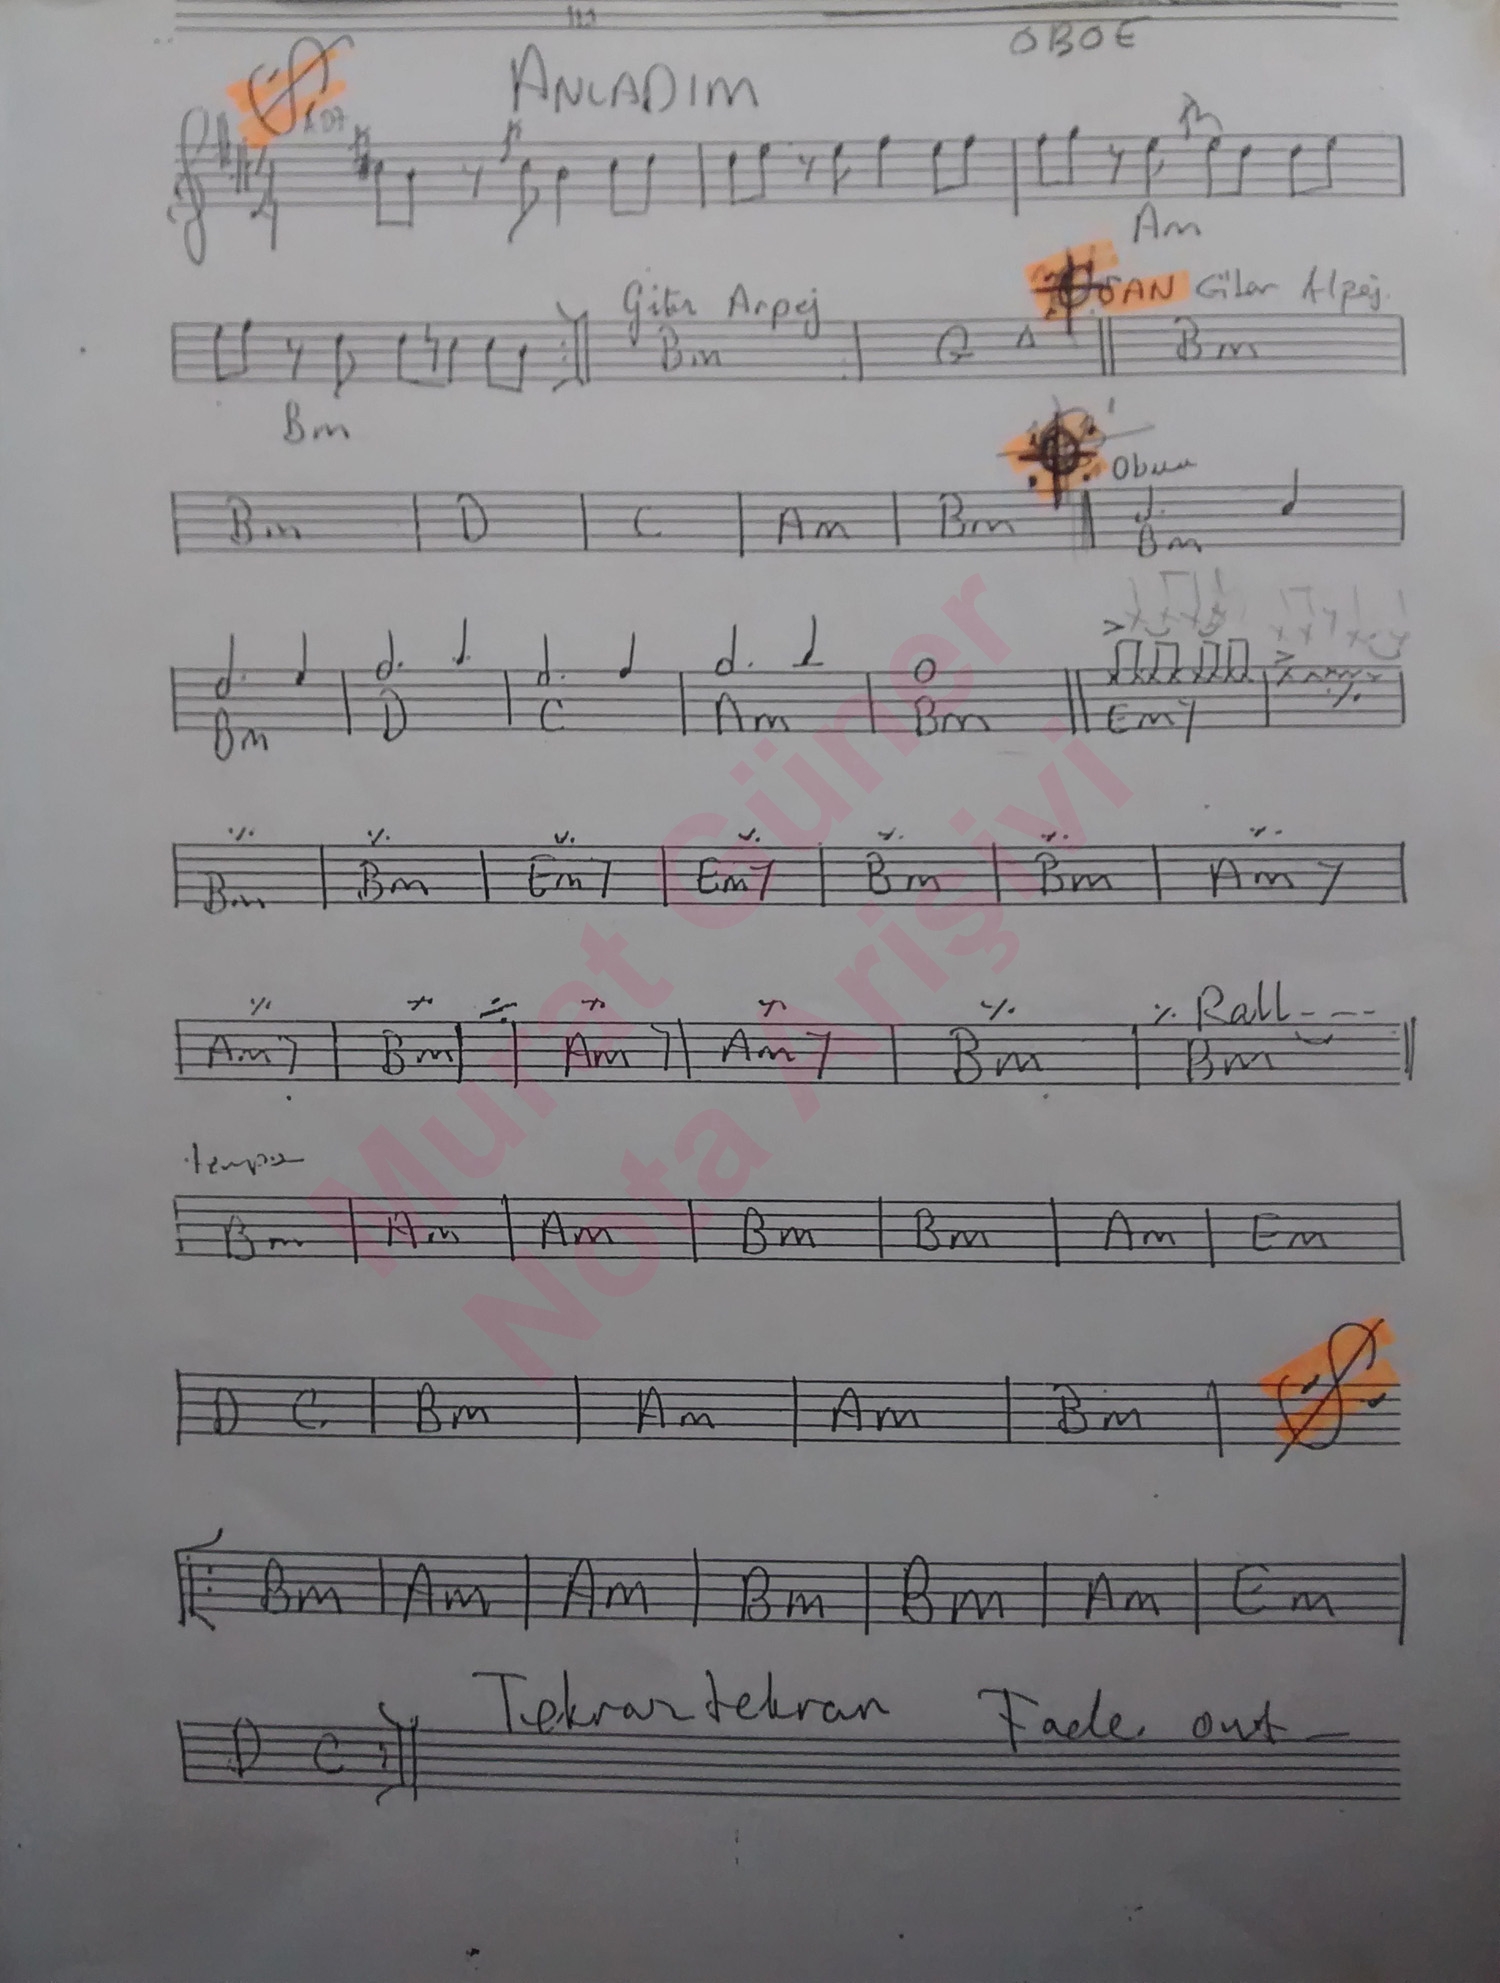 OBOE
ANLADIM
Am
Gitar Arpej
Bm G A Bm
Bm
Bm D C Am Bm Bm
Bm D C Am Bm Em7 %
% % % % % % %
Bm Bm Em7 Em7 Bm Bm Am7
% Rall - - -
Am7 Bm Am7 Am7 Bm Bm
tempo
Bm Am Am Bm Bm Am Em
D C Bm Am Am Bm
Bm Am Am Bm Bm Am Em
Tekrar tekrar Fade out
D C
Murat Güner
Nota Arişivi